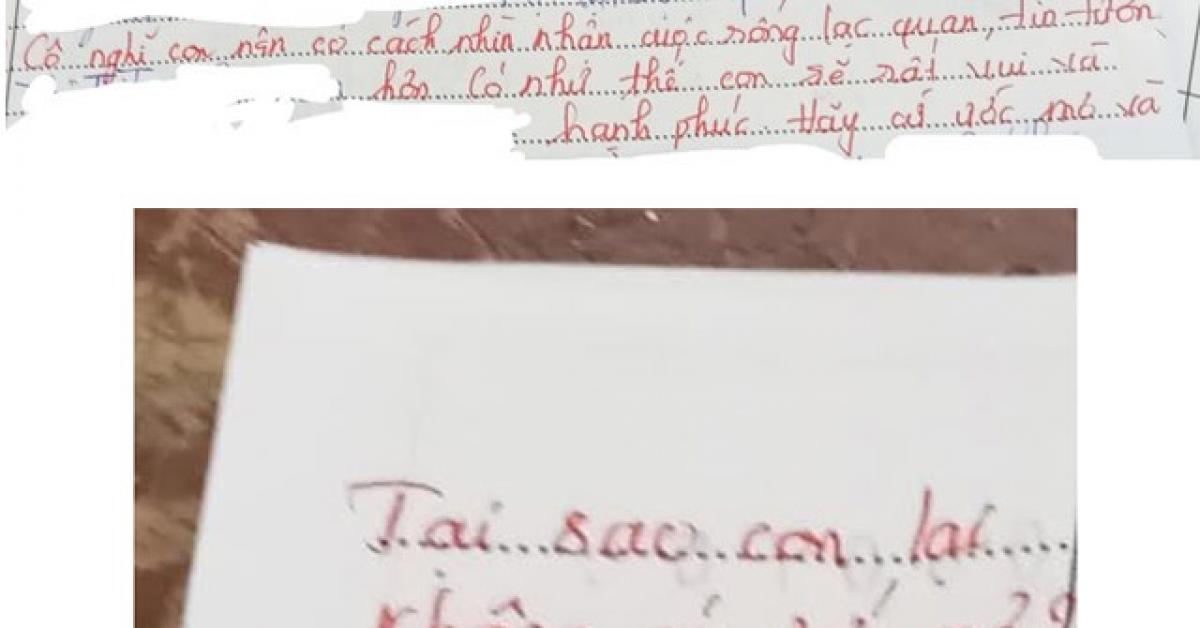 Cô nghĩ con nên có cách nhìn nhận cuộc sống lạc quan, tin tưởn
hơn Có như thế con sẽ rất vui và
hạnh phúc. Hãy cứ ước mơ và
Tại sao con lại